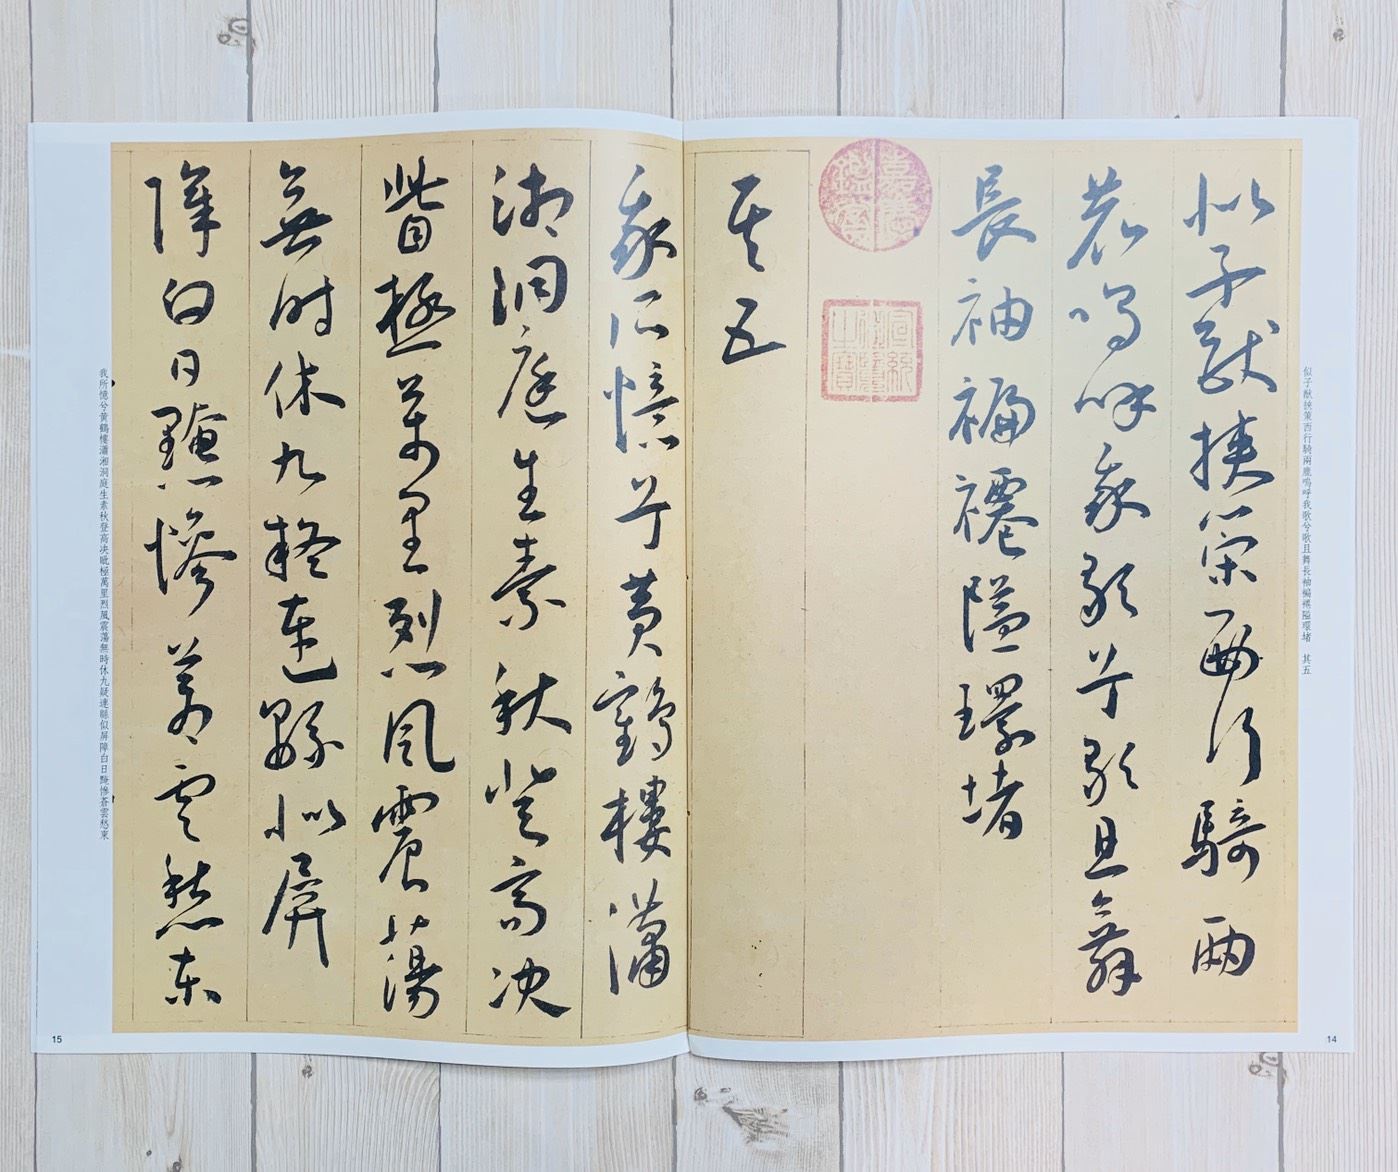 似子猷挾策西行騎兩鹿嗚呼我歌兮歌且舞長袖褊褼隘環堵 其五
似子猷挾策西行騎兩
鹿嗚呼我歌兮歌且舞
長袖褊褼隘環堵
嘉慶鑑賞
宣統御覽之寶
其五
我所憶兮黄鶴樓瀟
湘洞庭生素秋登高決
眥極萬里烈風震蕩
無時休九疑連緜似屏
障白日黯慘蒼雲愁東
我所憶兮黄鶴樓瀟湘洞庭生素秋登高決眦極萬里烈風震蕩無時休九疑連緜似屏障白日黯慘蒼雲愁東
14
15